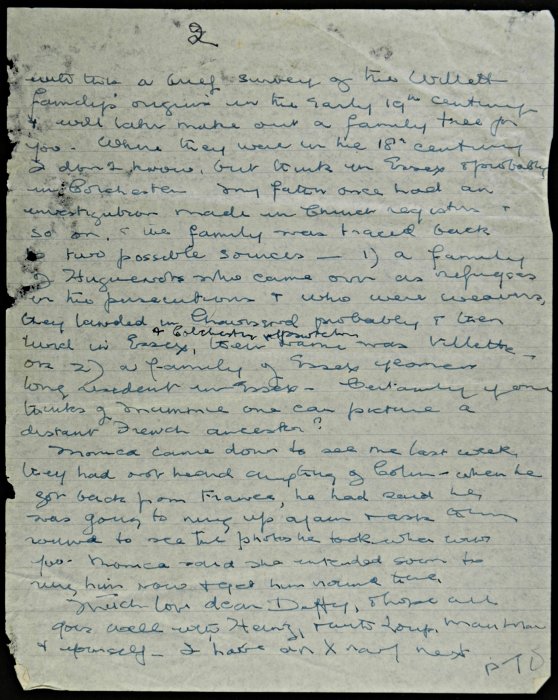 2
with this a brief survey of the Willett
family's origin in the early 19th century
& will later make out a family tree for
you. Where they were in the 18th century
I don't know, but think in Essex & probably
in Colchester. My father once had an
investigation made in Church registers &
so on, & the family was traced back
to two possible sources — 1) a family
of Huguenots who came over as refugees
in the persecutions & who were weavers,
they landed in probably & then
& Colchester & Ipswich
lived in Essex, their name was Villette —
or 2) a family of Essex yeomen
long resident in Essex — Certainly if one
thinks of Mummie one can picture a
distant French ancestor?
Monica came down to see me last week,
they had not heard anything of Colin — when he
got back from France, he had said he
was going to ring up again & ask them
round to see the photos he took when with
you. Monica said she intended soon to
ring him now & get him round there.
Much love dear Deffy, I hope all
goes well with Heinz, & with Loup,
& yourself — I have an X ray next
P T O